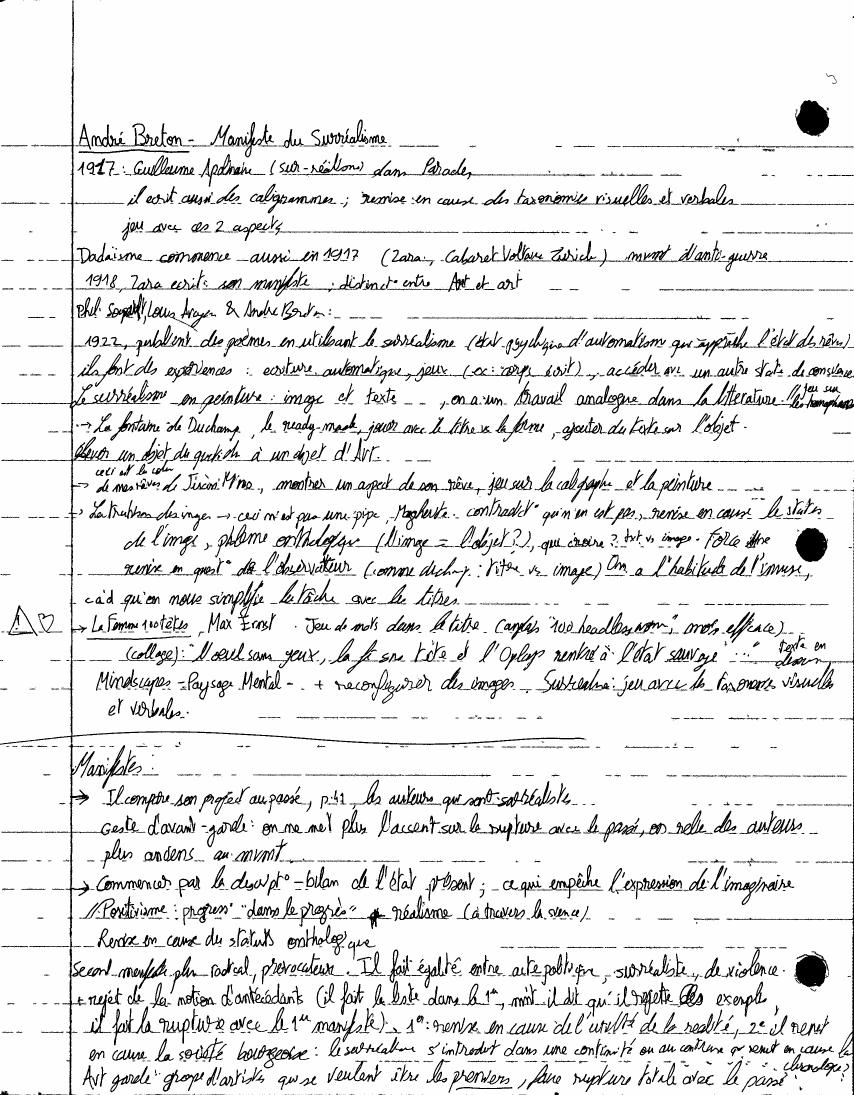 André Breton - Manifeste du Surréalisme
1917 : Guillaume Apolinaire (sur-réalisme) dans Parades,
il ecrit aussi des caligrammes ; remise en cause des taxonomies visuelles et verbales
jeu avec ces 2 aspects
Dadaïsme commence aussi en 1917 (Zara, Cabaret Voltaire Zurich) mvmt d'anti-guerre
1918, Zara ecrit son manifeste ; distinct° entre Art et art
Phil. Soupault, Louis Aragon & André Breton :
1922, publient des poèmes en utilisant le surréalisme (état psychique d'automatism qui rapproche l'état des rêves)
ils font des expériences : ecriture automatique, jeux (ex: corps écrit), accéder avec un autre state de conscience
Le surréalisme en peinture : image et texte , on a un travail analogue dans la litterature. jeu sur
les homophones
→ La fontaine de Duchamp, le ready-made, jouer avec le titre vs la forme, ajouter du texte sur l'objet.
élever un objet du quotidien à un objet d'Art.
ceci est la couleur
→ de mes rêves de Miro, montrer un aspect de son rêve, jeu sur la caligraphie et la peinture
→ La trahison des images → ceci n'est pas une pipe, Magherite. contradict° qu'n'en est pas, remise en cause le status
de l'image, phlème onthologique (l'image = l'objet?), qui croire ? txt vs image. Force une
remise en quest° de l'observateur (comme duchamp : titre vs image) On a l'habitude de l'inverse,
càd qu'on nous simplifie la tâche avec les titres
→ La Femme 100 têtes, Max Ernst. Jeu de mots dans le titre (anglais "100 headless woman", moins efficace)
(collage) : "l'oeuil sans yeux, la fe sans tête et l'Oplop rentre à l'état sauvage ..." texte en
dessous
Mindscapes = Paysage Mental - + reconfigurer des images. Surrealisme : jeu avec les taxonomies visuelles
et verbales.
Manifestes :
→ Il compare son project au passé, p.41, les auteurs qui sont surréalistes
Geste d'avant-garde : on ne met plus l'accent sur la rupture avec le passé, on relie des auteurs
plus anciens au mvmt.
→ Commencer par la descript° - bilan de l'état présent ; ce qui empêche l'expression de l'imaginaire
// Positivisme : progress° "dans le progrès" réalisme (à travers la science)
Remise en cause du statuts onthologique
Second manifeste plus radical, provocateur. Il fait égalité entre acte politique, surréaliste, de violence.
+ rejet de la notion d'antécédants (il fait la liste dans le 1er, mnt il dit qu'il rejette les exemples,
il fait la rupture avec le 1er manifeste). 1° : remise en cause de l'utilité de la realité, 2° il remet
en cause la société bourgeoise : le surréalisme s'introduit dans une continuité ou au contraire qu remet en cause la
chronologie ?
Avt garde : groupe d'artistes qui se veulent être les premiers, faire rupture totale avec le passé